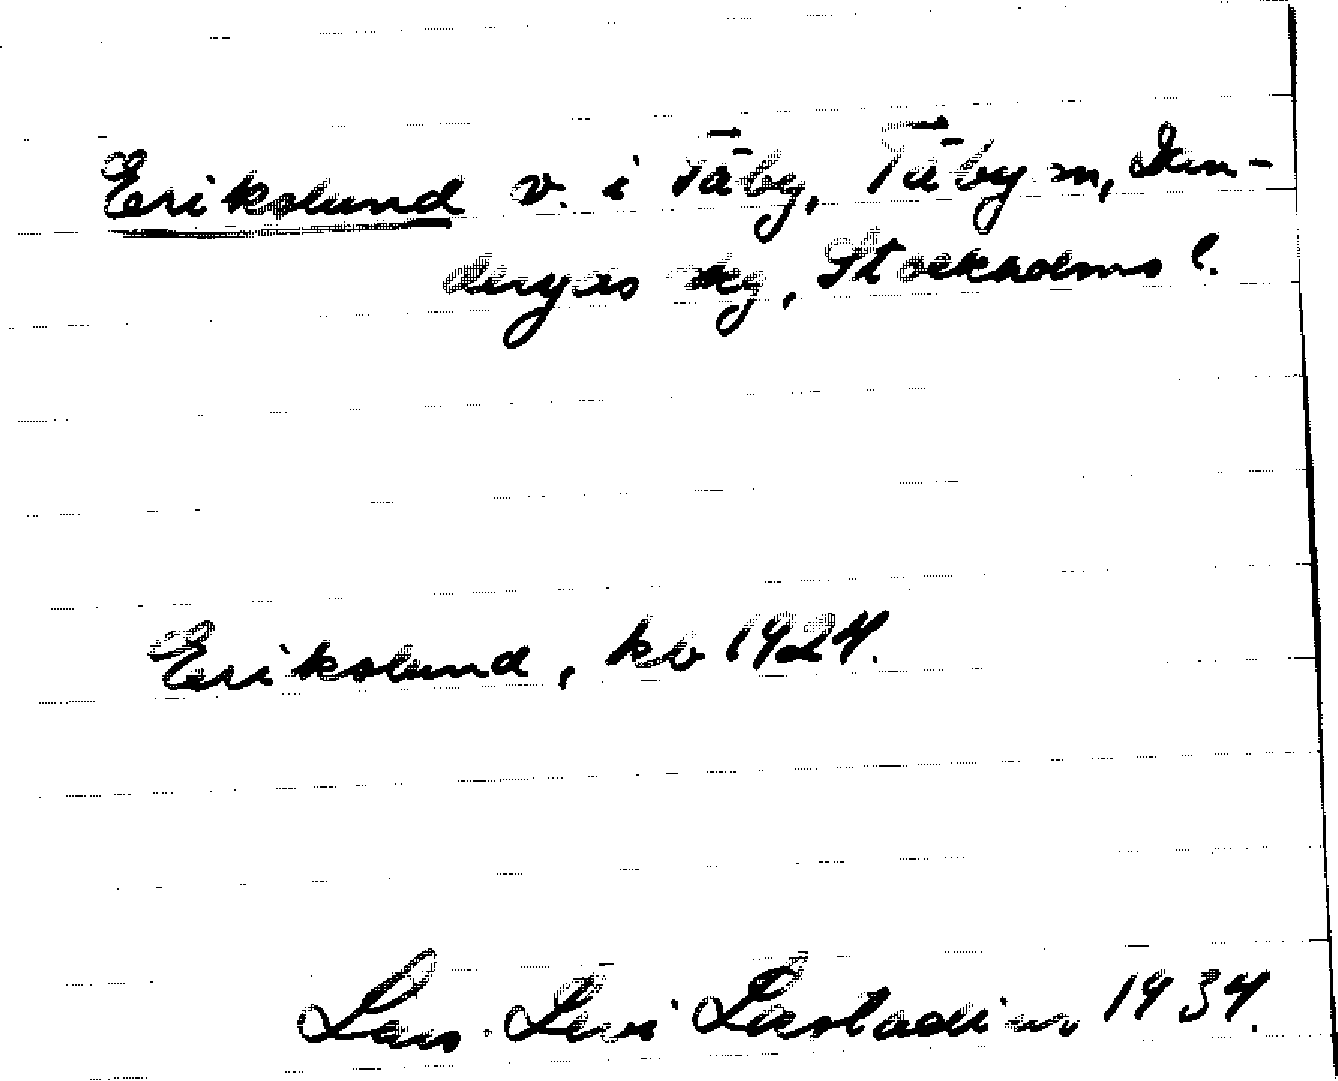 Erikslund v. i Täby, Täby sn, Dan-
deryds skg, Stockholms l.
Erikslund, kb 1924.
Lars Levi Læstadius 1934.